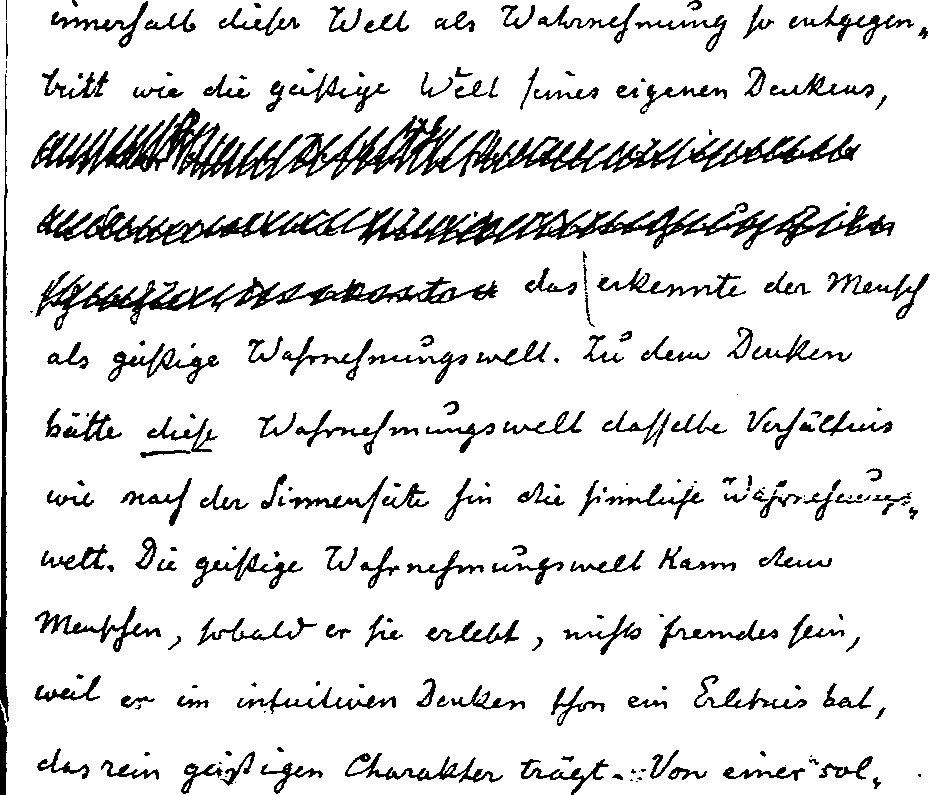 innerhalb dieser Welt als Wahrnehmung so entgegen„
tritt wie die geistige Welt seines eigenen Denkens,
das erkennte der Mensch
als geistige Wahrnehmungswelt. Zu dem Denken
hätte diese Wahrnehmungswelt dasselbe Verhältnis
wie nach der Sinnenseite hin die sinnliche Wahrnehmungs„
welt. Die geistige Wahrnehmungswelt kann dem
Menschen, sobald er sie erlebt, nichts fremdes sein,
weil er im intuitiven Denken schon ein Erlebnis hat,
das rein geistigen Charakter trägt. Von einer sol„